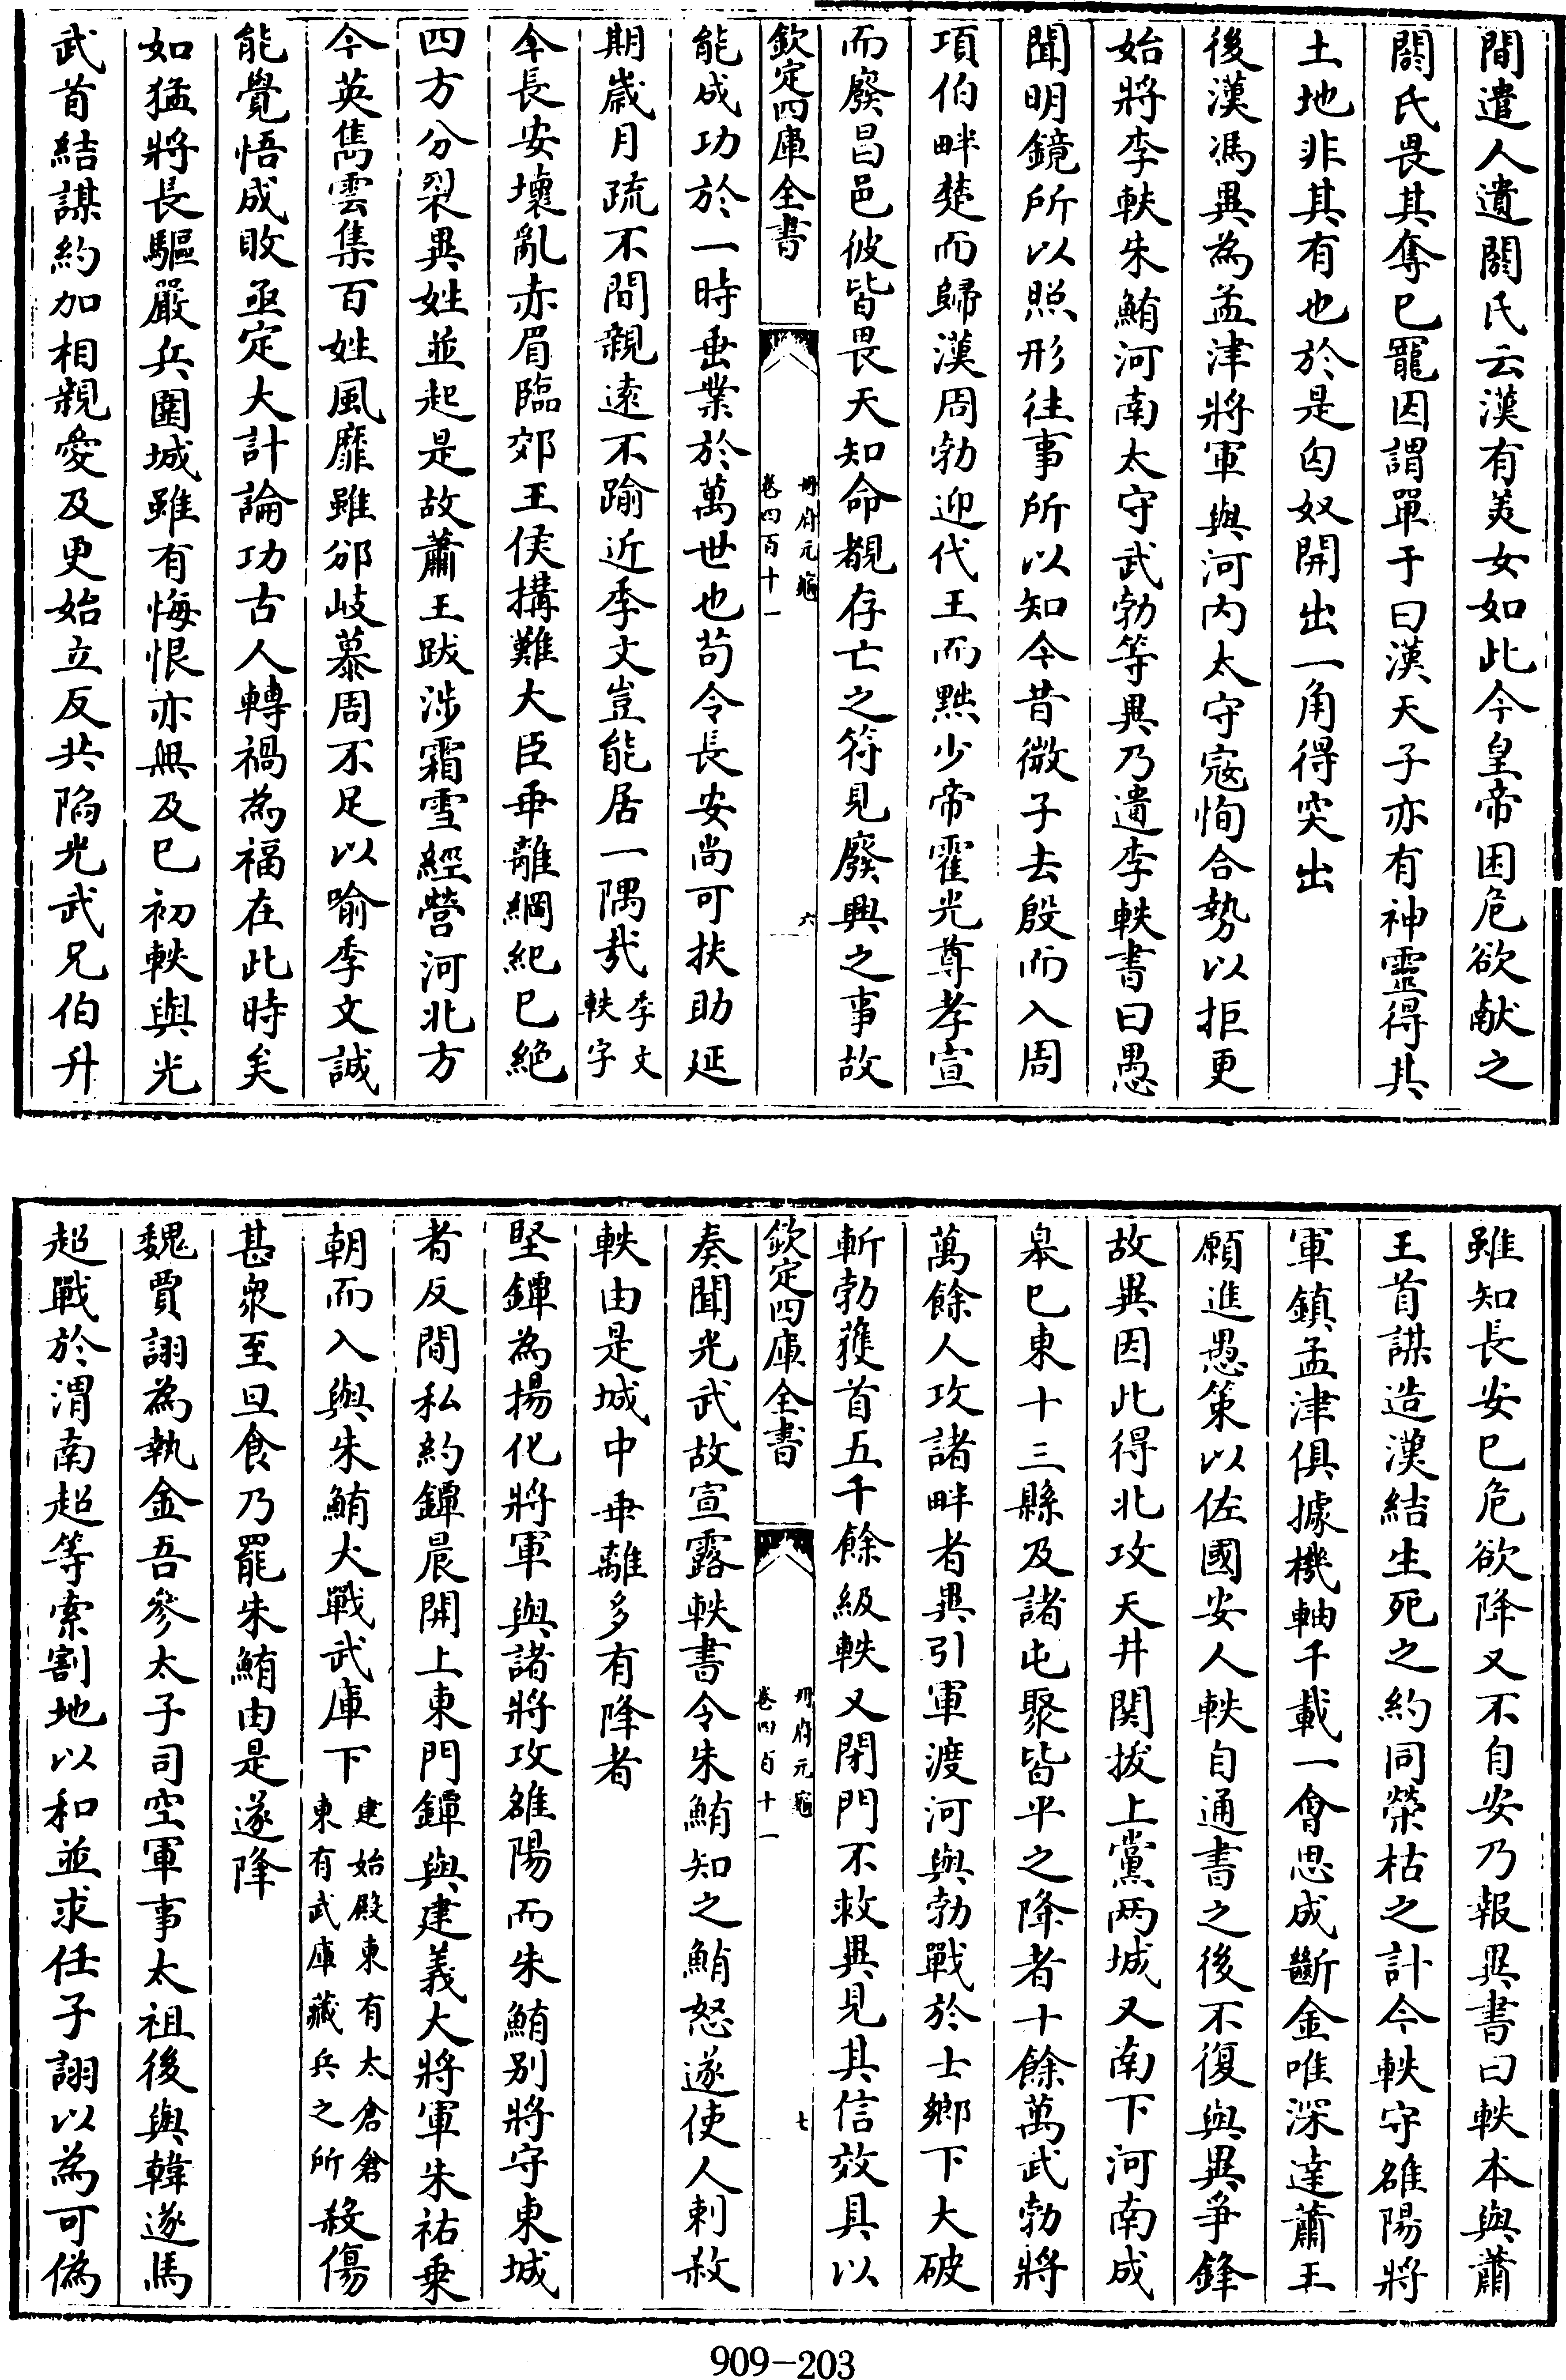 間遣人遺閼氏云漢有美女如此今皇帝困危欲献之
閼氏畏其奪已寵因謂單于曰漢天子亦有神靈得其
土地非其有也於是匈奴開出一角得突出
後漢馮異為孟津將軍與河内太守寇恂合勢以拒更
始將李軼朱鮪河南太守武勃等異乃遺李軼書曰愚
聞明鏡所以照形往事所以知今昔微子去殷而入周
項伯畔楚而歸漢周勃迎代王而黜少帝霍光尊孝宣
而廢昌邑彼皆畏天知命覩存亡之符見廢興之事故
欽定四庫全書
冊府元龜
卷四百十一
六
能成功於一時垂業於萬世也苟令長安尚可扶助延
期歲月疏不間親遠不踰近季文豈能居一隅哉季文
軼字
今長安壞亂赤眉臨郊王侯搆難大臣乖離綱紀已絶
四方分裂異姓並起是故蕭王跋涉霜雪經營河北方
今英雋雲集百姓風靡雖邠岐慕周不足以喻季文誠
能覺悟成敗亟定大計論功古人轉禍為福在此時矣
如猛將長驅嚴兵圍城雖有悔恨亦無及已初軼與光
武首結謀約加相親愛及更始立反共陷光武兄伯升
雖知長安已危欲降又不自安乃報異書曰軼本與蕭
王首謀造漢結生死之約同榮枯之計今軼守雒陽將
軍鎮孟津俱據機軸千載一會思成斷金唯深達蕭王
願進愚策以佐國安人軼自通書之後不復與異爭鋒
故異因此得北攻天井関拔上黨两城又南下河南成
皋已東十三縣及諸屯聚皆平之降者十餘萬武勃將
萬餘人攻諸畔者異引軍渡河與勃戰於士鄉下大破
斬勃獲首五千餘級軼又閉門不救異見其信效具以
欽定四庫全書
冊府元龜
卷四百十一
七
奏聞光武故宣露軼書令朱鮪知之鮪怒遂使人刺殺
軼由是城中乖離多有降者
堅鐔為揚化將軍與諸將攻雒陽而朱鮪别將守東城
者反間私約鐔晨開上東門鐔與建義大將軍朱祐乗
朝而入與朱鮪大戰武庫下建始殿東有太倉倉
東有武庫藏兵之所殺傷
甚衆至旦食乃罷朱鮪由是遂降
魏賈詡為執金吾參太子司空軍事太祖後與韓遂馬
超戰於渭南超等索割地以和並求任子詡以為可偽
909-203